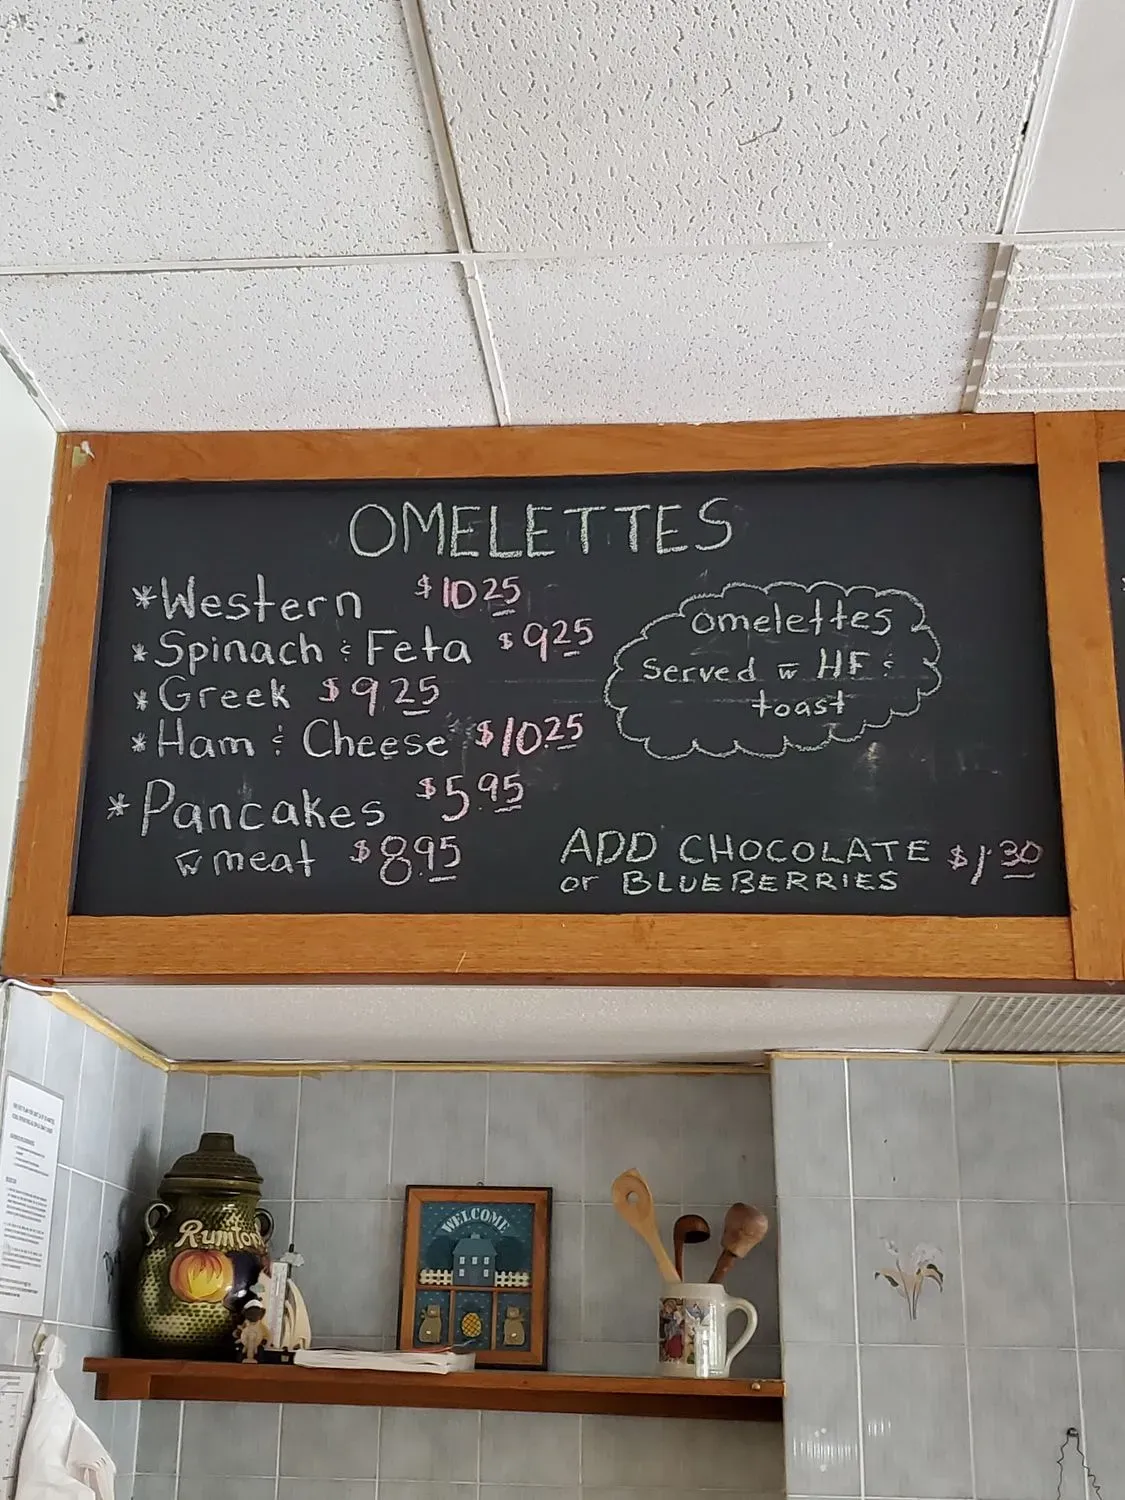 OMELETTES
*Western $10.25
*Spinach & Feta $9.25
*Greek $9.25
*Ham & Cheese $10.25
*Pancakes $5.95
w̅ meat $8.95
omelettes
Served w̅ HF &
toast
ADD CHOCOLATE $1.30
or BLUEBERRIES
WELCOME